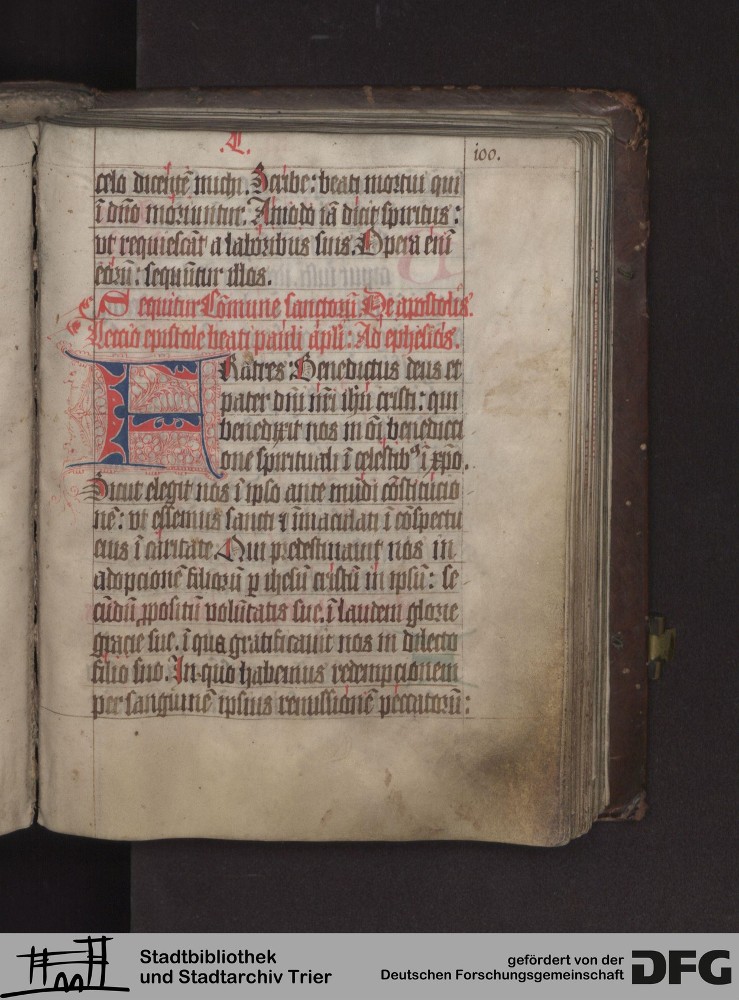 .L.
100.
celo dicentē michi. Scribe: beati mortui qui
ī dn̄o moriuntur. Amodo iā dicit spiritus:
vt requiescāt a laboribus suis. Opera eni̅
eorū: sequūtur illos.
Sequitur Cōmune sanctorū De apostolis.
Leccio epistole beati pauli apl̄i: Ad ephesios.
FRatres: Benedictus deus et
pater dn̄i nr̄i ihū cristi: qui
benedixit nos in oī benedicti
one spirituali ī celestibꝰ ī xp̄o.
Sicut elegit nos ī ipso ante mūdi cōstitucio
nē: vt essemus sancti ⁊ īmaculati ī cōspectu
eius ī caritate. Qui predestinauit nos in
adopcionē filiorū ꝑ ihesū cristū in ipsū: se
cūdū ꝓpositū volūtatis sue. ī laudem glorie
gracie sue. ī qua gratificauit nos in dilecto
filio suo. In quo habemus redempcionem
per sanguinē ipsius remissionē peccatorū:
Stadtbibliothek
und Stadtarchiv Trier
gefördert von der
Deutschen Forschungsgemeinschaft
DFG